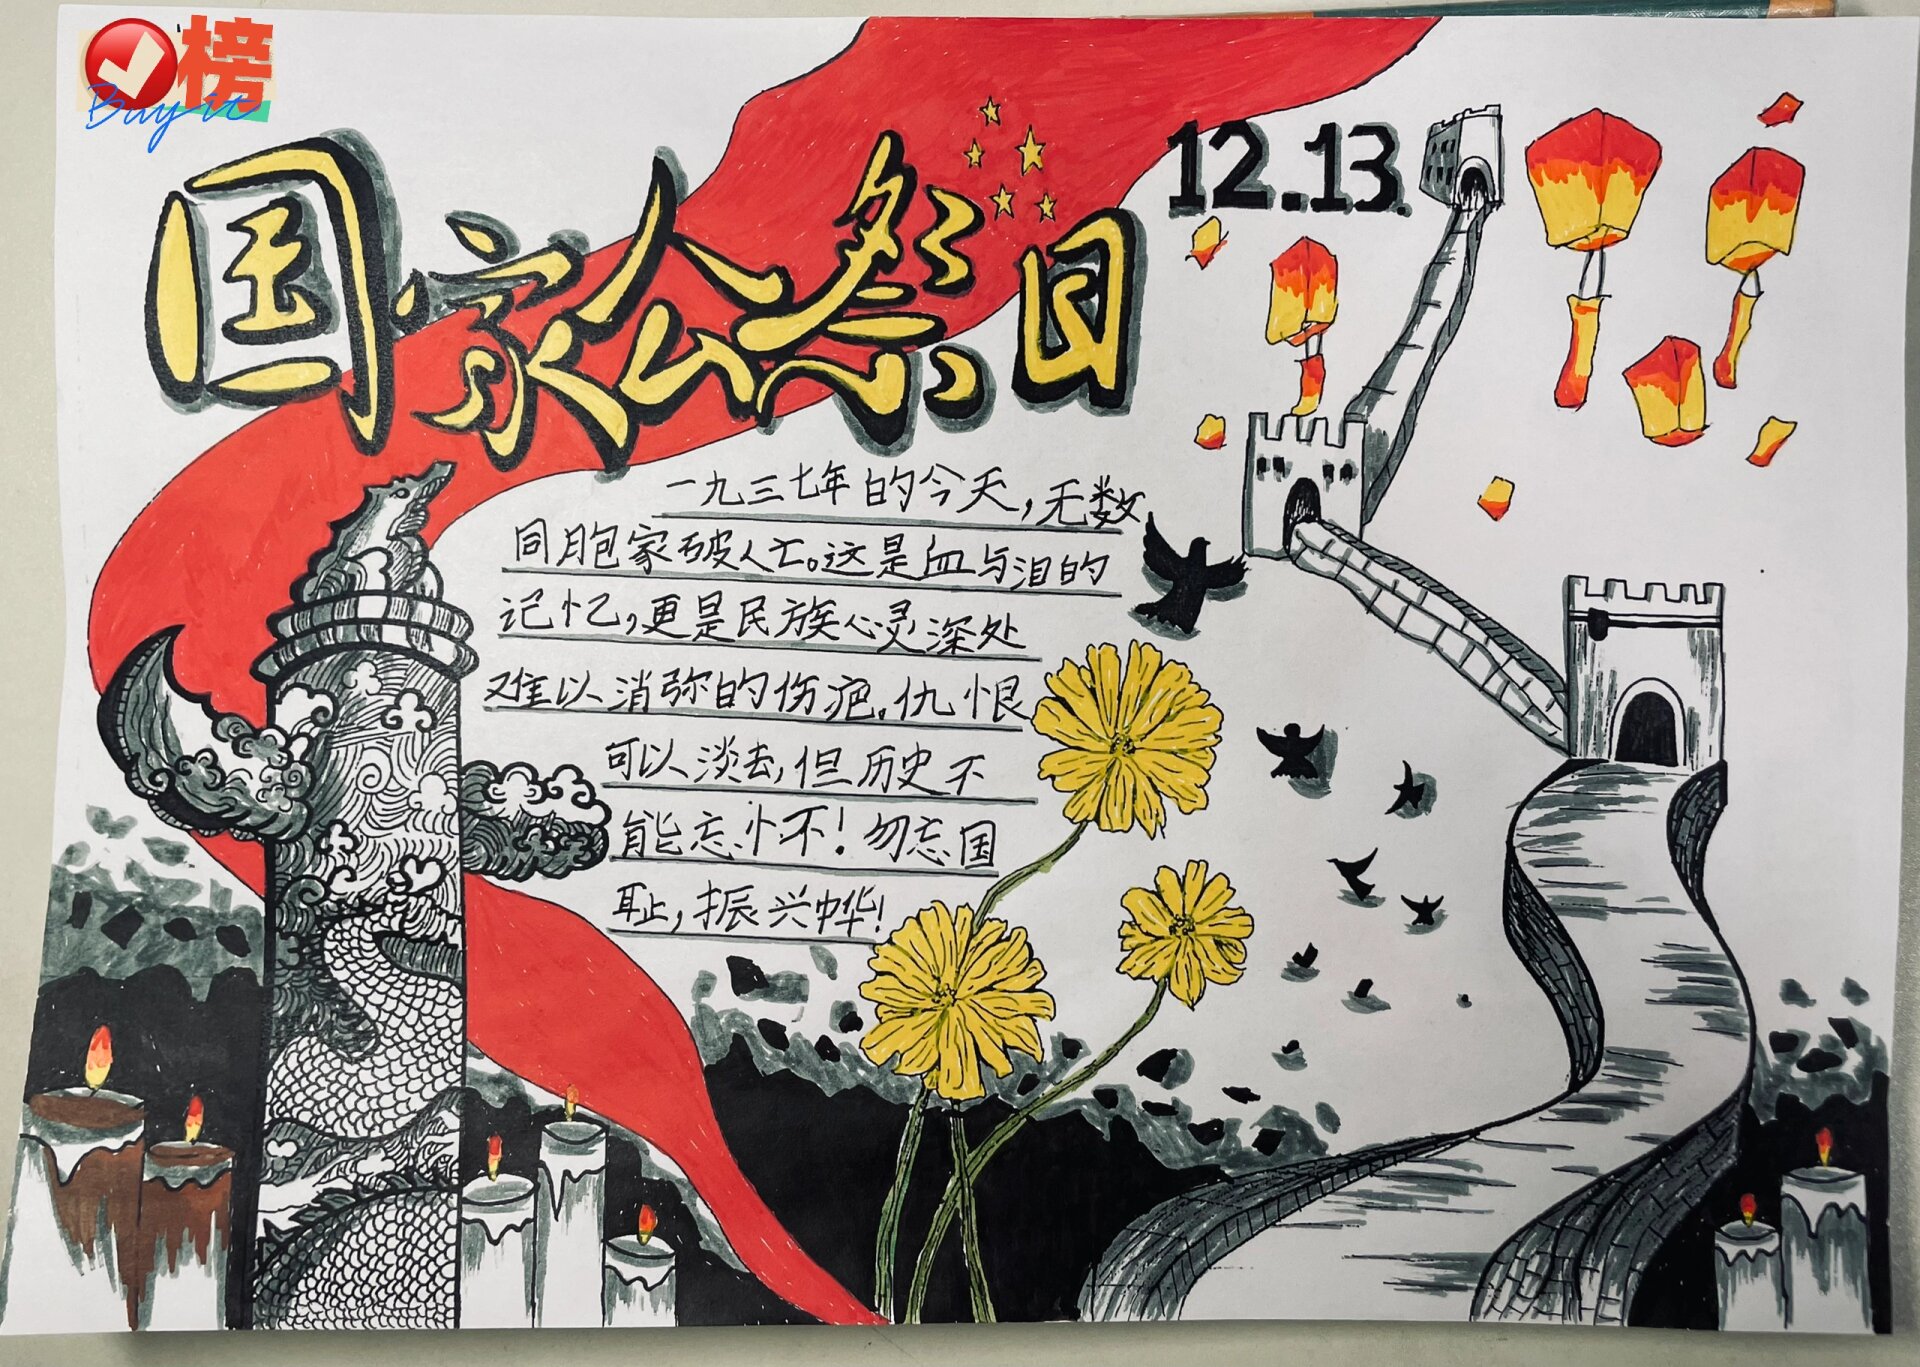 榜
Buy it
国家公祭日
12.13.
一九三七年的今天,无数
同胞家破人亡。这是血与泪的
记忆,更是民族心灵深处
难以消弥的伤疤。仇恨
可以淡去,但历史不
能忘怀!勿忘国
耻,振兴中华!